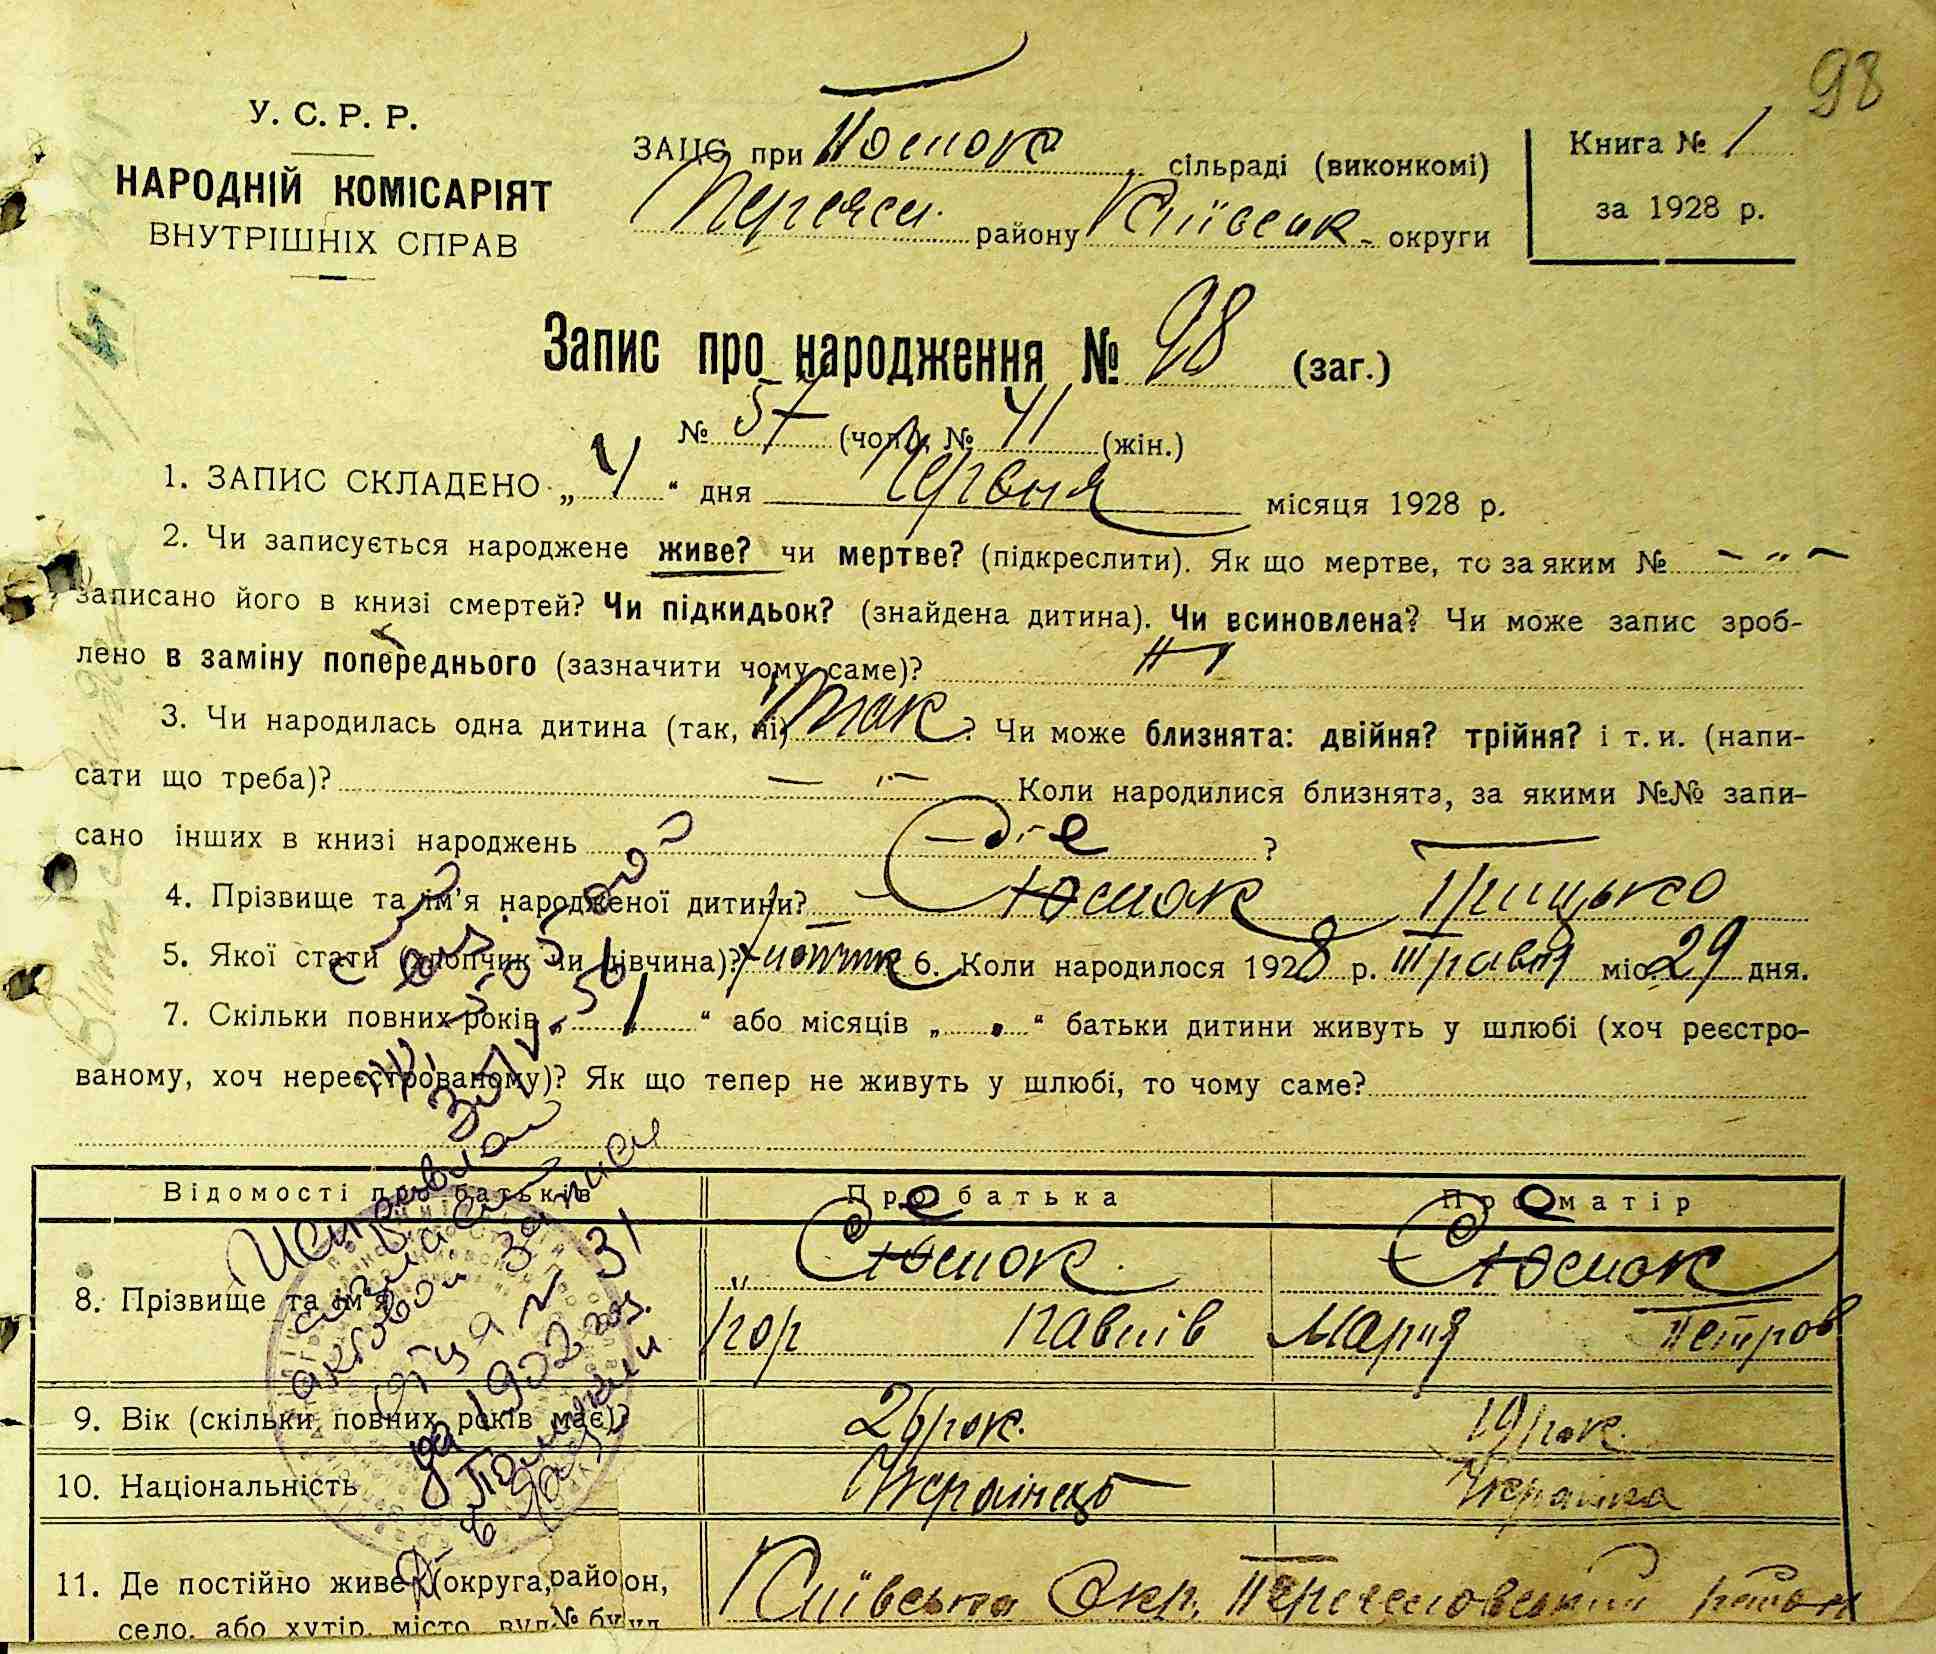 98
У. С. Р. Р.
НАРОДНІЙ КОМІСАРІЯТ
ВНУТРІШНІХ СПРАВ
ЗАЦС при Поток сільраді (виконкомі)
Переясл. району Київськ. округи
Книга № 1
за 1928 р.
Запис про народження № 98 (заг.)
№ 57 (чол.), № 41 (жін.)
1. ЗАПИС СКЛАДЕНО „ 4 “ дня Червня місяця 1928 р.
2. Чи записується народжене живе? чи мертве? (підкреслити). Як що мертве, то за яким № — „ —
записано його в книзі смертей? Чи підкидьок? (знайдена дитина). Чи всиновлена? Чи може запис зроб-
лено в заміну попереднього (зазначити чому саме)?
3. Чи народилась одна дитина (так, ні) Так ? Чи може близнята: двійня? трійня? і т. и. (напи-
сати що треба)? — „ — Коли народилися близнята, за якими №№ запи-
сано інших в книзі народжень ?
4. Прізвище та ім'я народженої дитини? Сюмок Грицько
5. Якої стати (хлопчик чи дівчина)? хлопчик 6. Коли народилося 1928 р. Травня міс. 29 дня.
7. Скільки повних років „ 1 “ або місяців „ “ батьки дитини живуть у шлюбі (хоч реєстро-
ваному, хоч нереєстрованому)? Як що тепер не живуть у шлюбі, то чому саме?
Відомості про батьків Про батька Про матір
8. Прізвище та ім'я Сюмок Сюмок
Павлів Мария Петров
9. Вік (скільки повних років має)? 26 рок. 19 рок.
10. Національність Українець Українка
11. Де постійно живе (округа, район, Київська Окр. Переяславський район
село, або хутір, місто, вул. № буд.
Исправлен
согласно
актовой записи
отца № 31
за 1902 год.